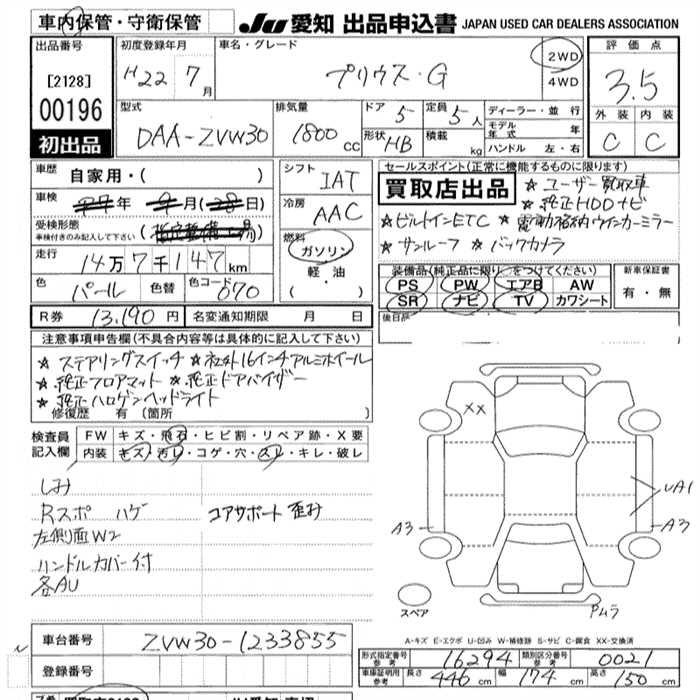 車内保管・守衛保管
JU 愛知 出品申込書 JAPAN USED CAR DEALERS ASSOCIATION
出品番号
[2128]
00196
初出品
初度登録年月
H22 7月
車名・グレード
プリウス・G
2WD
4WD
評価点
3.5
外装 内装
C C
型式
DAA-ZVW30
排気量
1800cc
ドア 5
形状 HB
定員 5人
積載 kg
ディーラー・並行
モデル年式 年
ハンドル 左・右
車歴
自家用・( )
車検
年 月( 28日)
受検形態
車検付きのみ記入して下さい
走行
14万7千147km
色
パール
色替
色コード
070
シフト
IAT
冷房
AAC
燃料
ガソリン
軽油
( ・ )
セールスポイント(正常に機能するものに限ります)
買取店出品
☆ユーザー買取車
☆純正HDDナビ
☆ビルトインETC ☆電動格納ウインカーミラー
☆サンルーフ ☆バックカメラ
装備品(純正品に限り○をつけてください)
PS PW エアB AW
SR ナビ TV カワシート
新車保証書
有・無
R券 13,190円
名変通知期限 月 日
後日品
注意事項申告欄(不具合内容等は具体的に記入して下さい)
☆ステアリングスイッチ ☆社外16インチアルミホイール
☆純正フロアマット ☆純正ドアバイザー
☆純正ハロゲンヘッドライト
修復歴 有(箇所 )
検査員記入欄
FW キズ・飛石・ヒビ割・リペア跡・X要
内装 キズ・汚レ・コゲ・穴・スレ・キレ・破レ
しみ
Rスポ ハゲ コアサポート歪み
左側面W2
ハンドルカバー付
各AU
XX
A3
UA1
A3
スペア
Pムラ
A-キズ E-エクボ U-凹み W-補修跡 S-サビ C-腐食 XX-交換済
車台番号 ZVW30-1233855
登録番号
形式指定番号 参考 16294
類別区分番号 参考 0021
車庫証明用 参考 長さ 446cm 幅 174cm 高さ 150cm